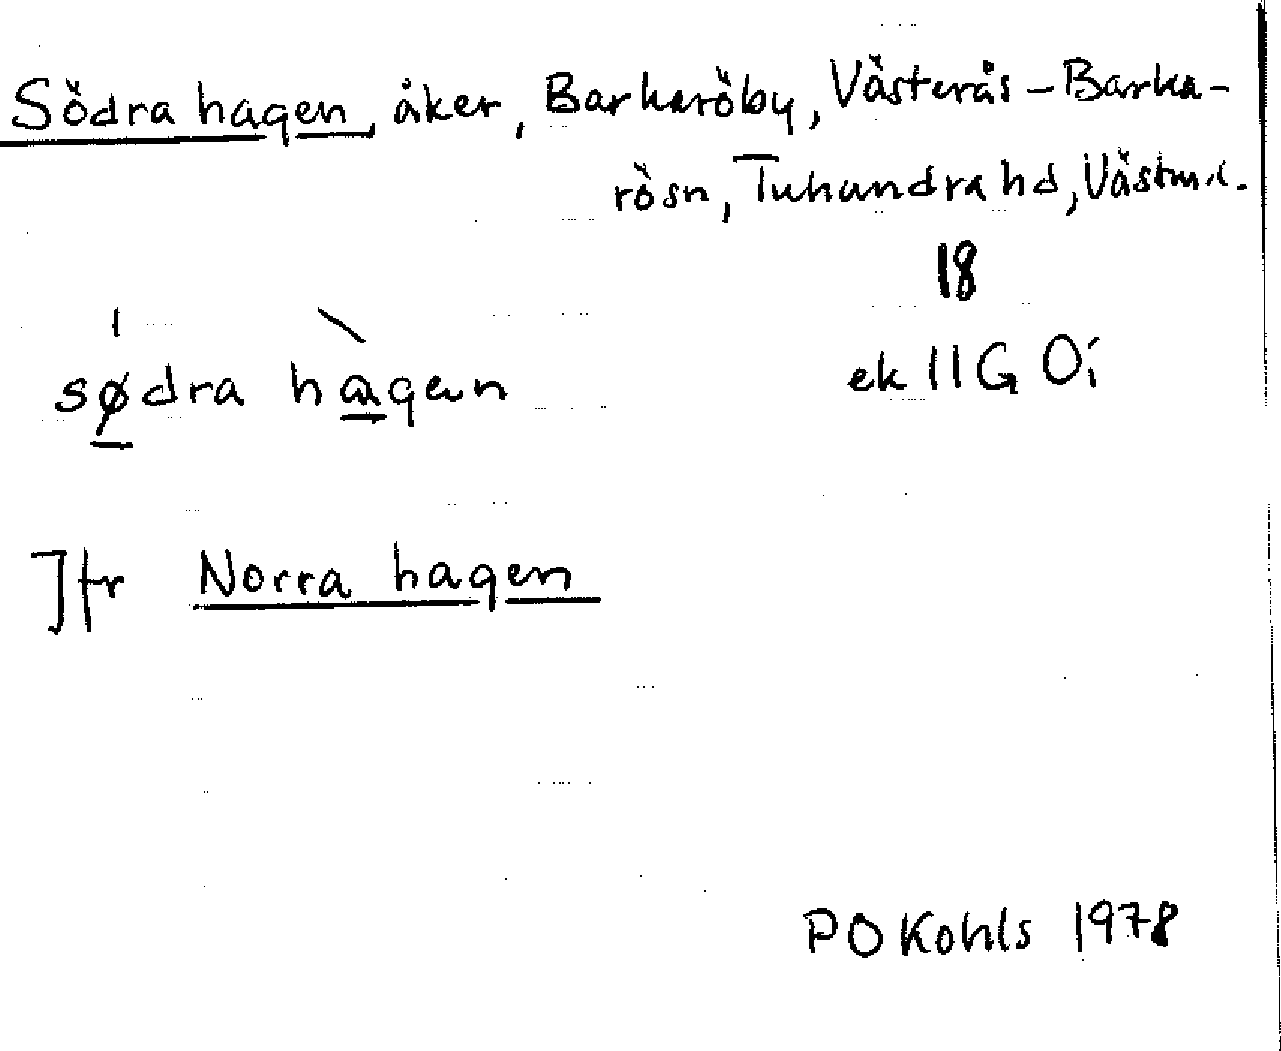 Södra hagen, åker, Barkaröby, Västerås-Barka-
rösn, Tuhundra hd, Västml.
18
södra hagen ek 11G 0i
Jfr Norra hagen
PO Kohls 1978